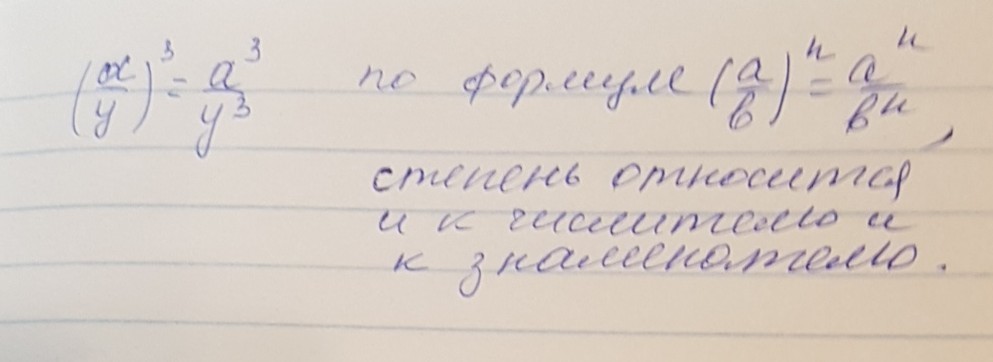 (a/y)³ = a³/y³ по формуле (a/b)ⁿ = aⁿ/bⁿ,
степень относится
и к числителю и
к знаменателю.